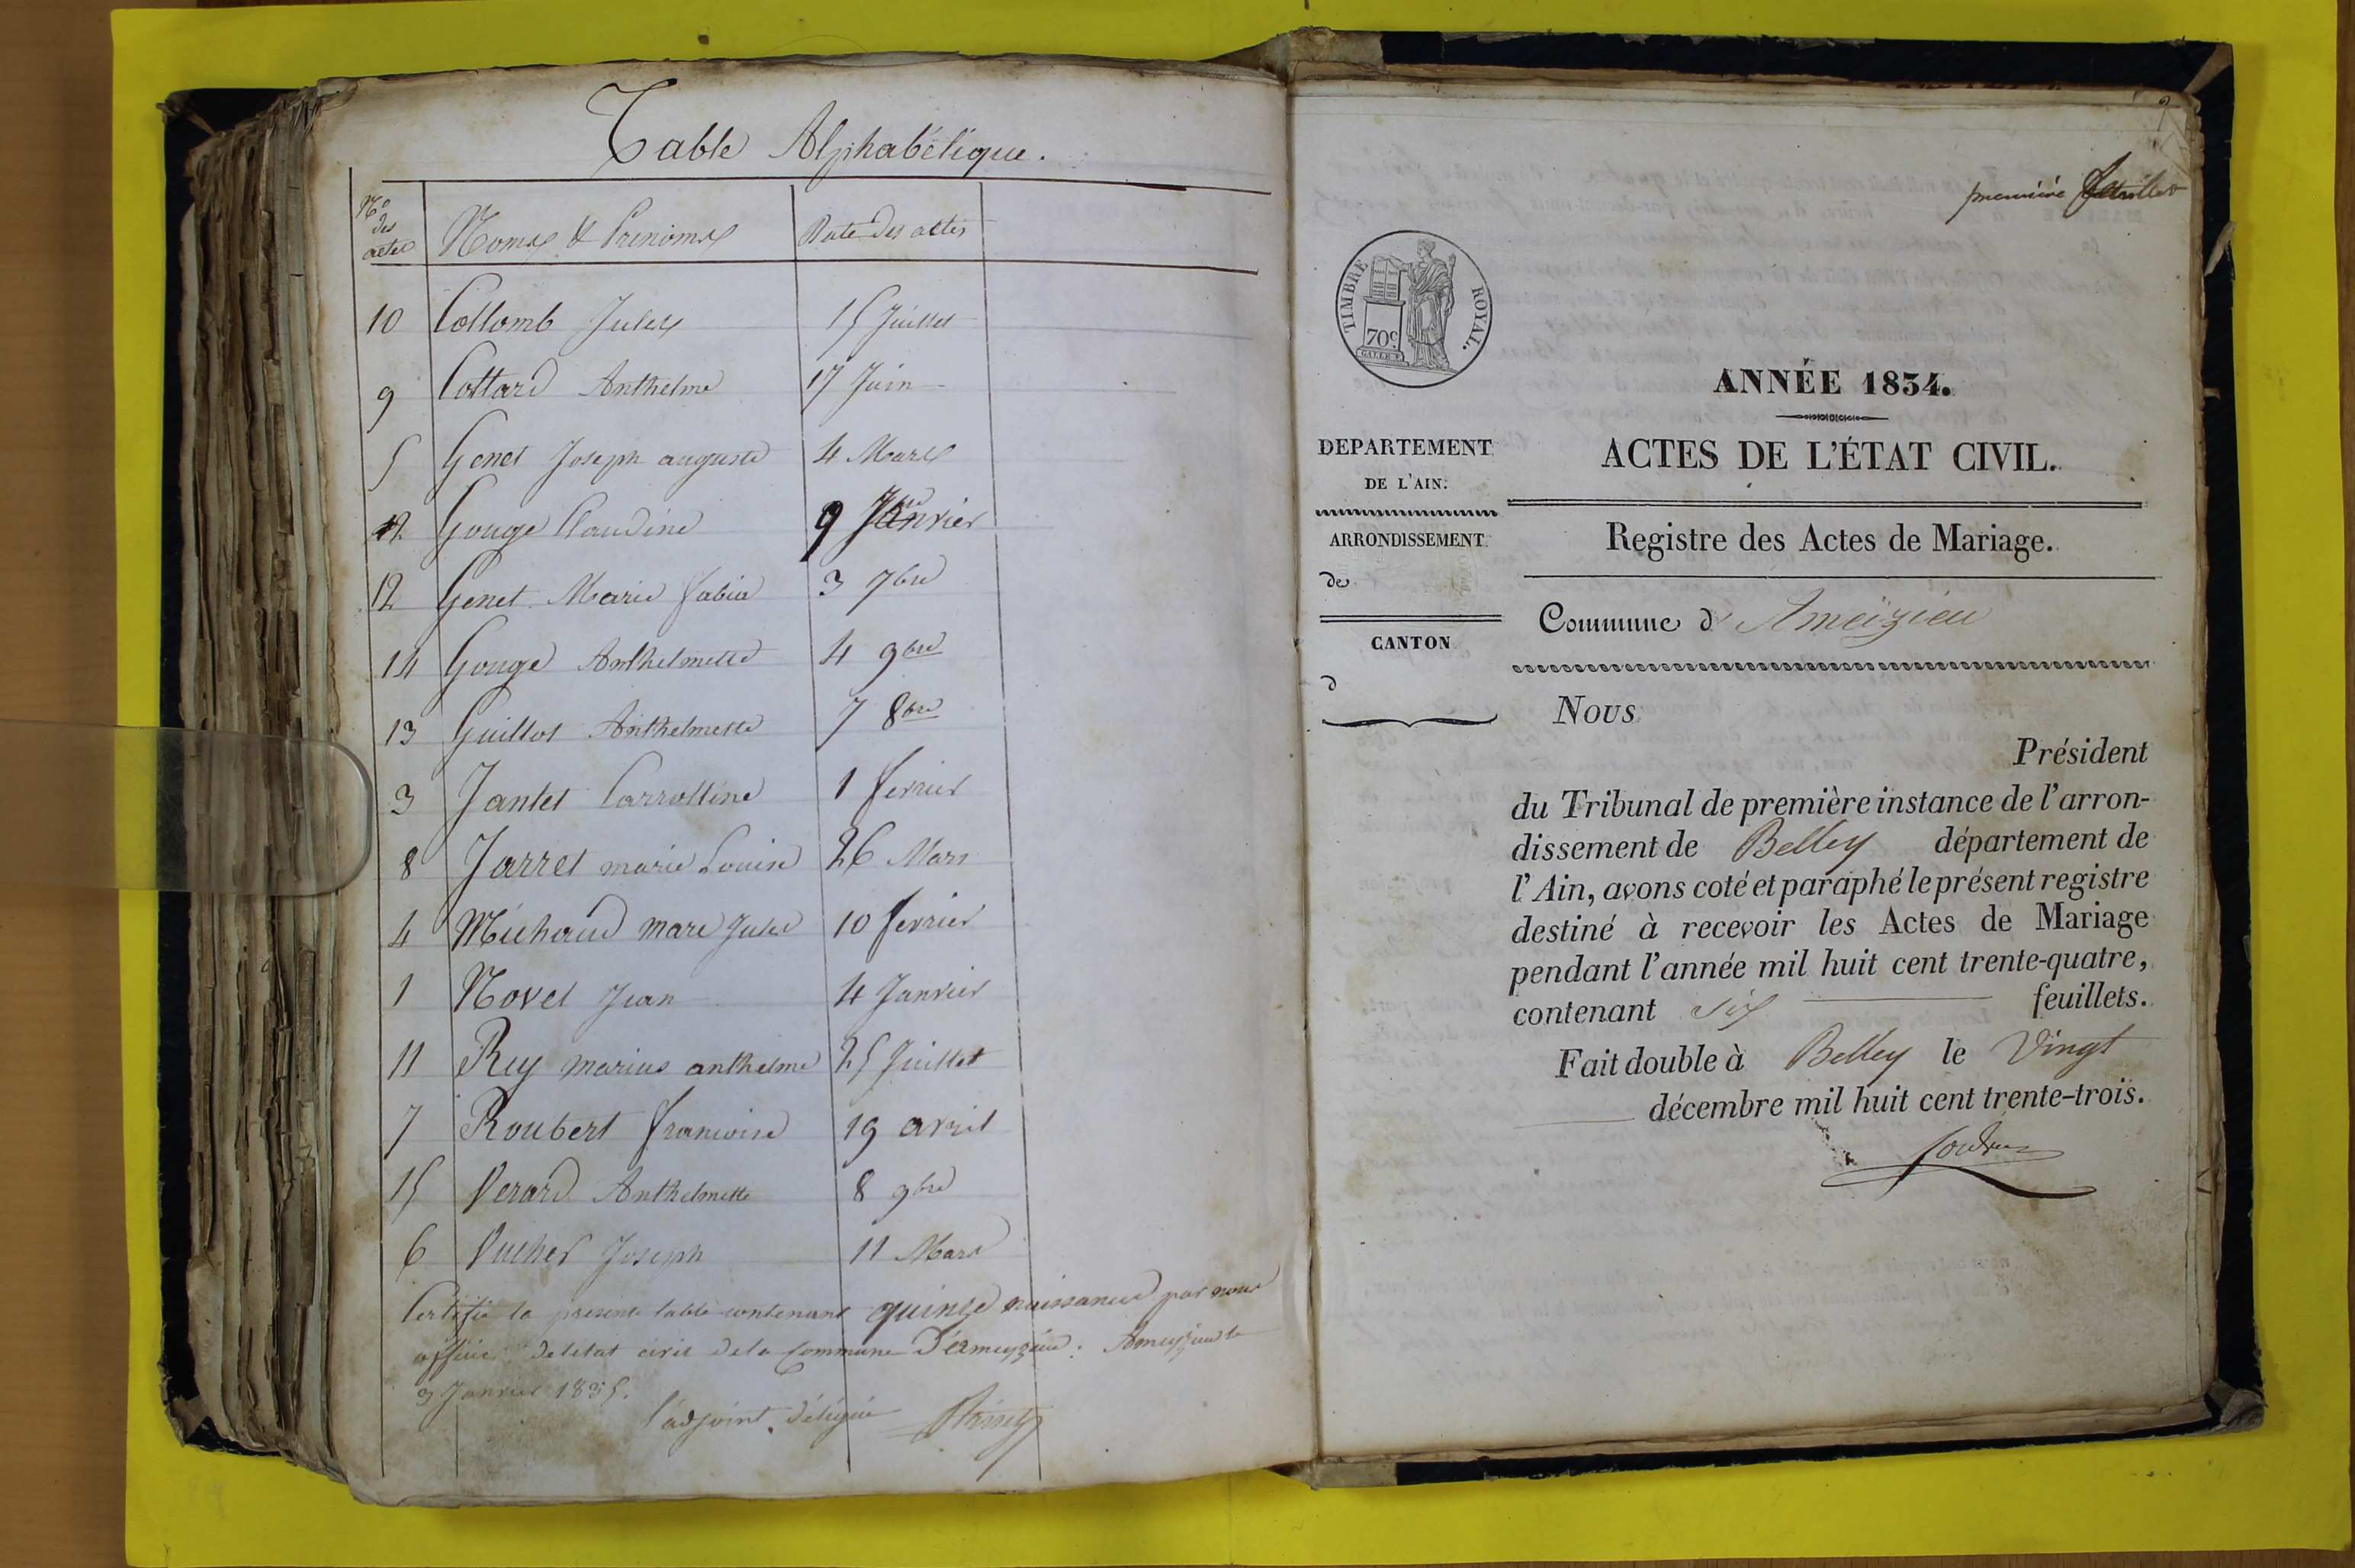 Table Alphabétique.
Nos des actes Noms & Prénoms Date des actes
10 Collomb Jules 15 Juillet
9 Cottard Anthelme 17 Juin
5 Genet Joseph auguste 4 Mars
2 Gouge Claudine 9 Janvier
12 Genet Marie 3 7bre
14 Gouge Anthelmette 4 9bre
13 Guillot Anthelmette 7 8bre
3 Jantet Carrolline 1 fevrier
8 Jarret marie Louise 26 Mars
4 Michaud marc Jules 10 fevrier
1 Novel Jean 4 Janvier
11 Rey marius anthelme 25 Juillet
7 Roubert francoise 19 avril
15 Verard Anthelmette 8 9bre
6 Vucher Joseph 11 Mars
Certifié la presente table contenant quinze naissances par nous
officier de l'etat civil de la Commune D'ameyzieu. Ameyzieu le
3 Janvier 1835.
l'adjoint délégué
première feuillet
TIMBRE ROYAL.
70c.
ANNÉE 1834.
DEPARTEMENT
DE L'AIN.
ARRONDISSEMENT
de
CANTON
d
ACTES DE L'ÉTAT CIVIL.
Registre des Actes de Mariage.
Commune d'Ameizieu
Nous
Président
du Tribunal de première instance de l'arron-
dissement de Belley département de
l'Ain, avons coté et paraphé le présent registre
destiné à recevoir les Actes de Mariage
pendant l'année mil huit cent trente-quatre,
contenant six feuillets.
Fait double à Belley le Vingt
décembre mil huit cent trente-trois.